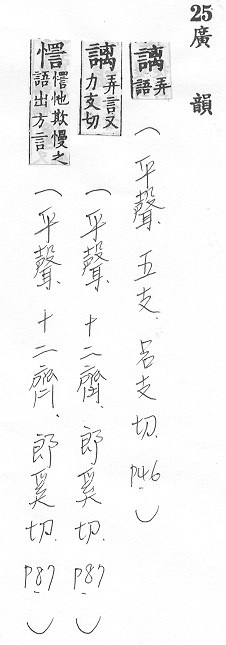 25廣韻
謧 弄語 （平聲.五支.呂支切.P46.）
謧 弄言又力支切 （平聲.十二齊.郎奚切.P87.）
𢠳 𢠳忚欺慢之語出方言 （平聲.十二齊.郎奚切.P87.）